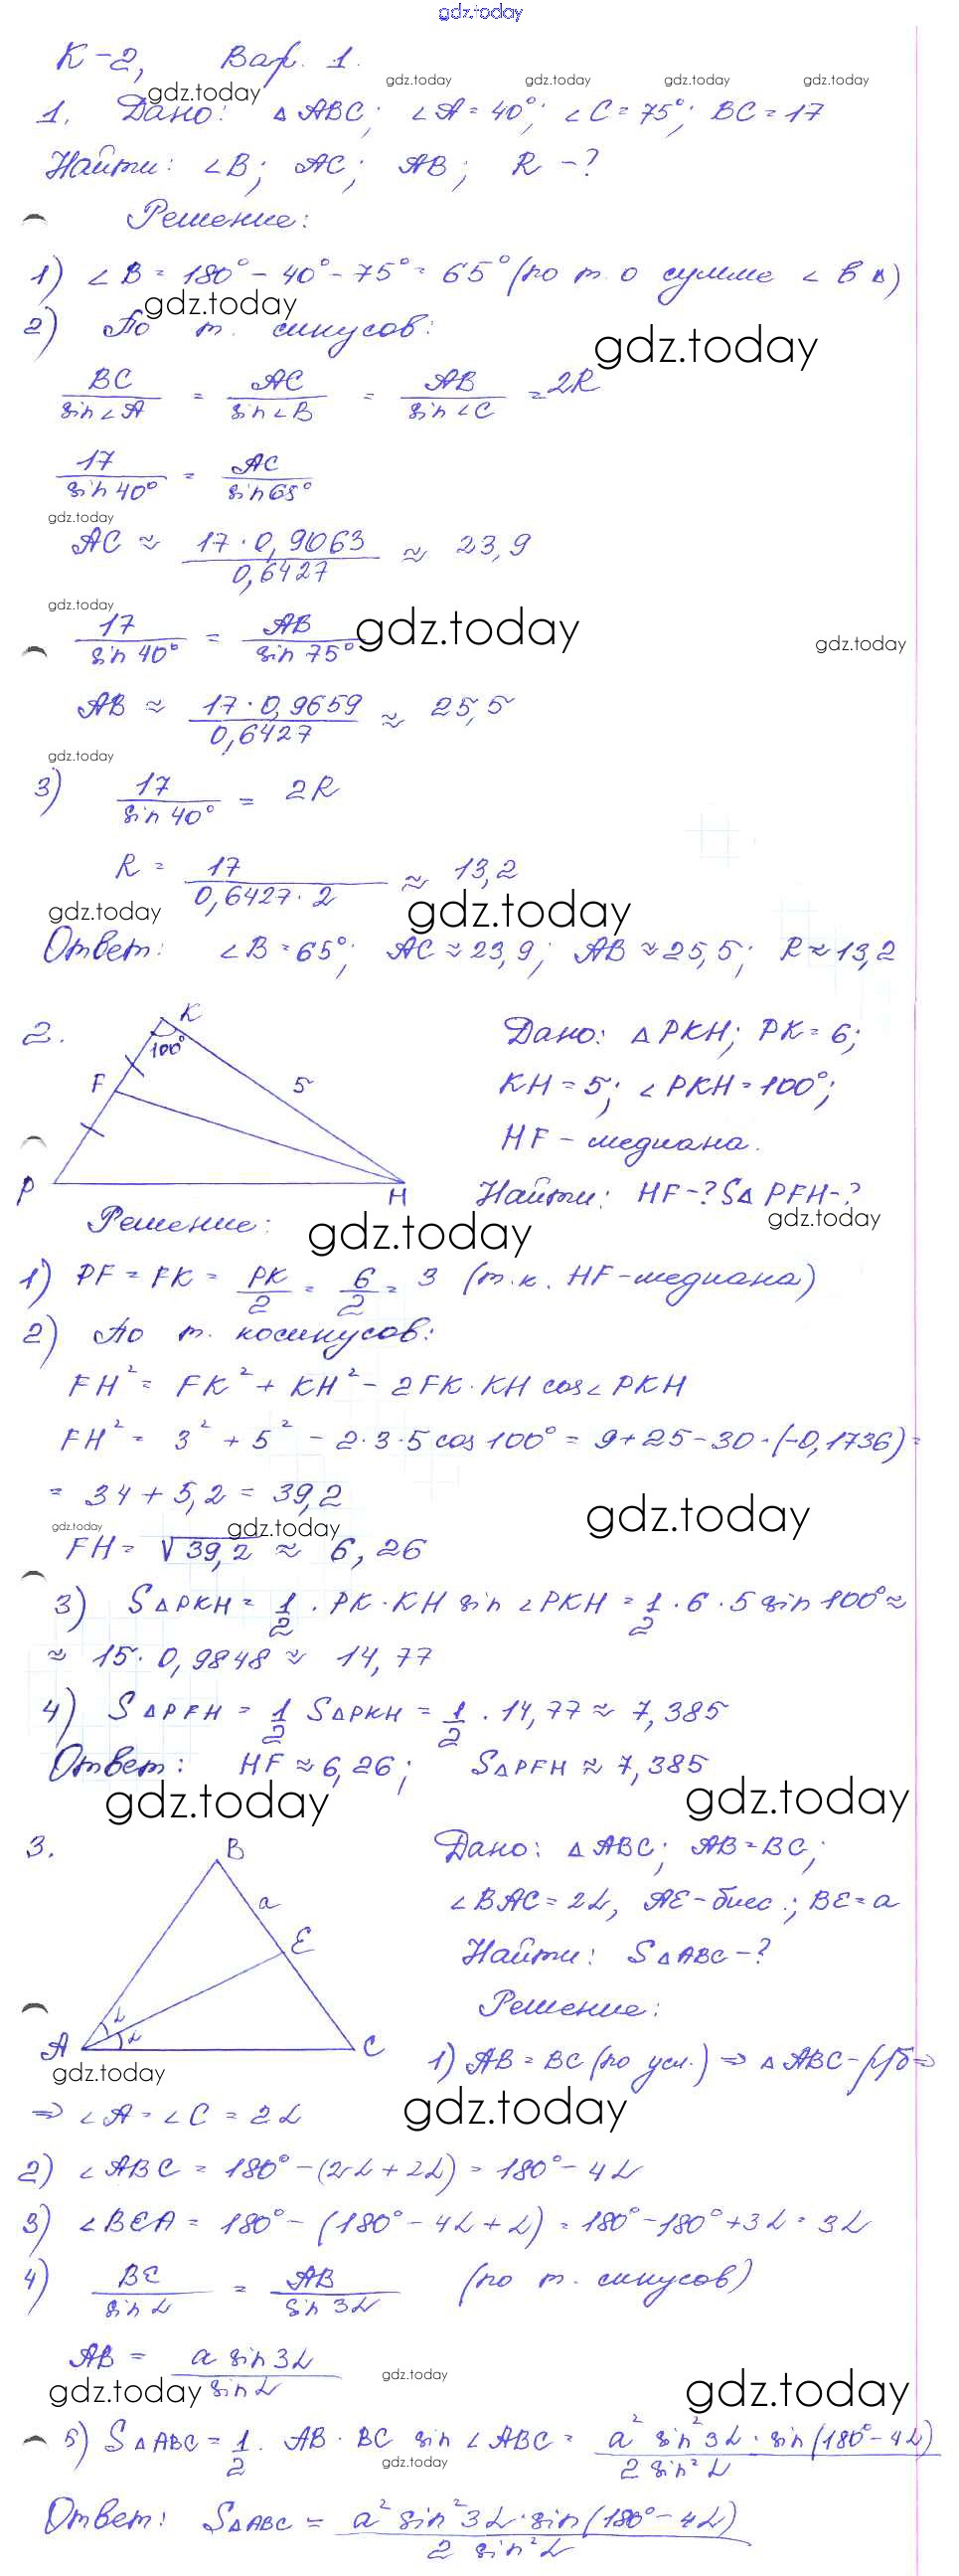 gdz.today
К-2, Вар. 1.
gdz.today gdz.today gdz.today gdz.today gdz.today
1. Дано: △ABC; ∠A = 40°; ∠C = 75°; BC = 17
Найти: ∠B; AC; AB; R - ?
Решение:
1) ∠B = 180° - 40° - 75° = 65° (по т. о сумме ∠ в △)
gdz.today
2) По т. синусов:
gdz.today
BC / sin∠A = AC / sin∠B = AB / sin∠C = 2R
17 / sin 40° = AC / sin 65°
gdz.today
AC ≈ 17 · 0,9063 / 0,6427 ≈ 23,9
gdz.today
17 / sin 40° = AB / sin 75°
gdz.today gdz.today
AB ≈ 17 · 0,9659 / 0,6427 ≈ 25,5
gdz.today
3) 17 / sin 40° = 2R
R = 17 / 0,6427 · 2 ≈ 13,2
gdz.today gdz.today
Ответ: ∠B = 65°; AC ≈ 23,9; AB ≈ 25,5; R ≈ 13,2
2. K 100° F 5 P H
Дано: △PKH; PK = 6;
KH = 5; ∠PKH = 100°;
HF - медиана.
Найти: HF - ? S△PFH - ?
gdz.today
Решение:
gdz.today
1) PF = FK = PK / 2 = 6 / 2 = 3 (т.к. HF - медиана)
2) По т. косинусов:
FH² = FK² + KH² - 2FK · KH cos∠PKH
FH² = 3² + 5² - 2·3·5 cos 100° = 9 + 25 - 30 · (-0,1736) =
= 34 + 5,2 = 39,2
gdz.today gdz.today gdz.today
FH = √39,2 ≈ 6,26
3) S△PKH = 1/2 · PK · KH sin∠PKH = 1/2 · 6 · 5 sin 100° ≈
≈ 15 · 0,9848 ≈ 14,77
4) S△PFH = 1/2 S△PKH = 1/2 · 14,77 ≈ 7,385
Ответ: HF ≈ 6,26; S△PFH ≈ 7,385
gdz.today gdz.today
3. B a E A α α C
Дано: △ABC; AB = BC;
∠BAC = 2α, AE - бисс.; BE = a
Найти: S△ABC - ?
Решение:
1) AB = BC (по усл.) ⇒ △ABC - р/б ⇒
gdz.today gdz.today
⇒ ∠A = ∠C = 2α
2) ∠ABC = 180° - (2α + 2α) = 180° - 4α
3) ∠BEA = 180° - (180° - 4α + α) = 180° - 180° + 3α = 3α
4) BE / sin α = AB / sin 3α (по т. синусов)
AB = a sin 3α / sin α
gdz.today gdz.today gdz.today
5) S△ABC = 1/2 · AB · BC sin∠ABC = a² sin² 3α · sin(180° - 4α) / 2 sin² α
gdz.today
Ответ: S△ABC = a² sin² 3α · sin(180° - 4α) / 2 sin² α